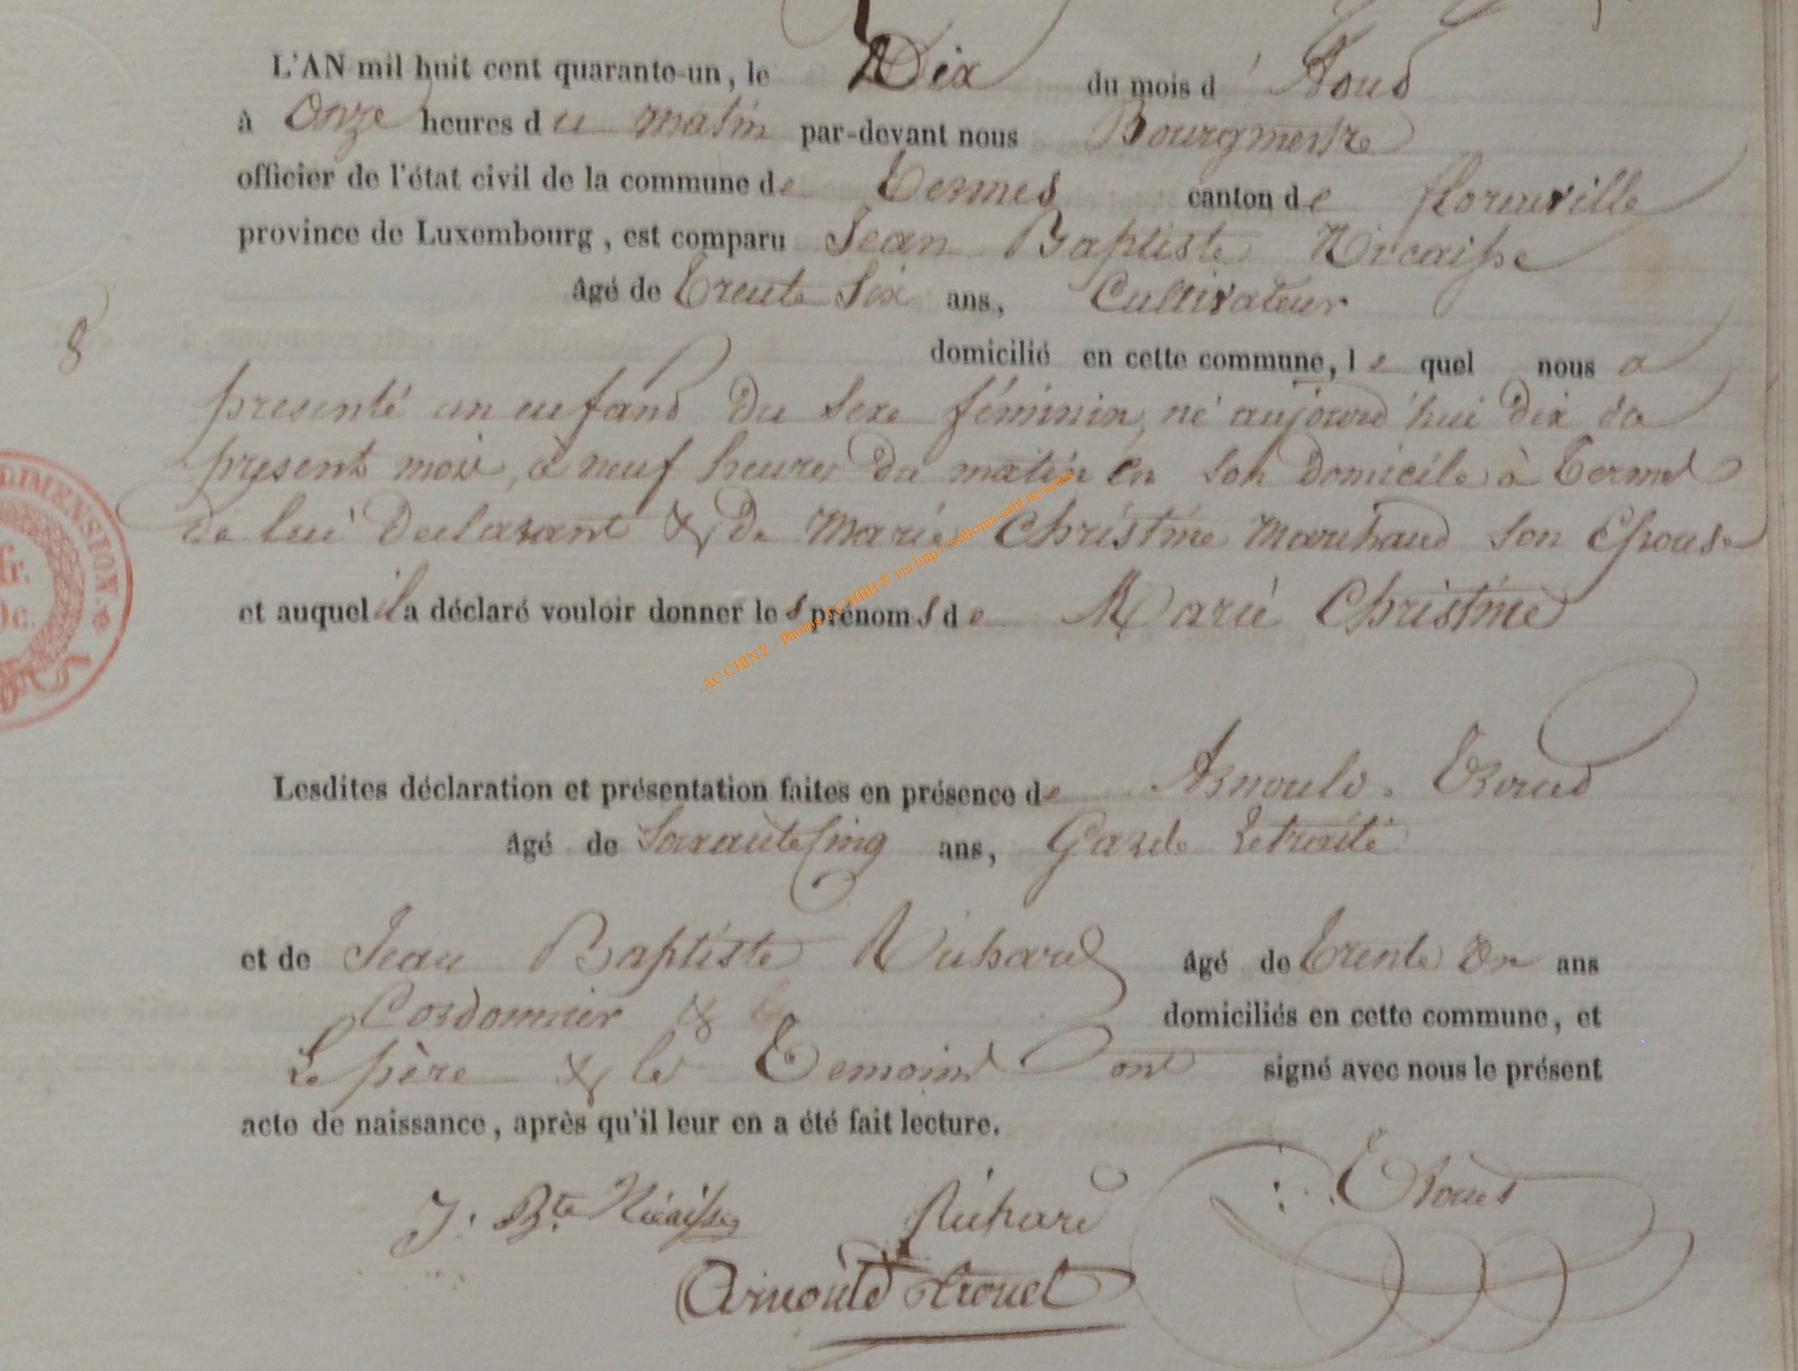 L'AN mil huit cent quarante-un, le Dix du mois d'Aoud
à Onze heures du matin par-devant nous Bourgmestre
officier de l'état civil de la commune de Termes canton de florenville
province de Luxembourg, est comparu Jean Baptiste Nicaisse
âgé de Trente Six ans, Cultivateur
domicilié en cette commune, le quel nous a
8
presenté un enfand du sexe féminin, né aujourd'hui dix du
present mois, à neuf heures du matin en son domicile à Termes
de lui declarant & de Marie Christine Marchand son Epouse
et auquel il a déclaré vouloir donner les prénoms de Marie Christine
DIMENSION
fr.
Lesdites déclaration et présentation faites en présence de Arnould Troud
âgé de Soixante Cinq ans, Garde retraité
et de Jean Baptiste Richard âgé de Trente un ans
Cordonnier & domiciliés en cette commune, et
Le père & les Temoins ont signé avec nous le présent
acte de naissance, après qu'il leur en a été fait lecture.
J. Bte Nicaisse Richard
Arnould Trouet
AC CHINY - Photos J.CHBH ® via http://wallonia-asbl.be/actes